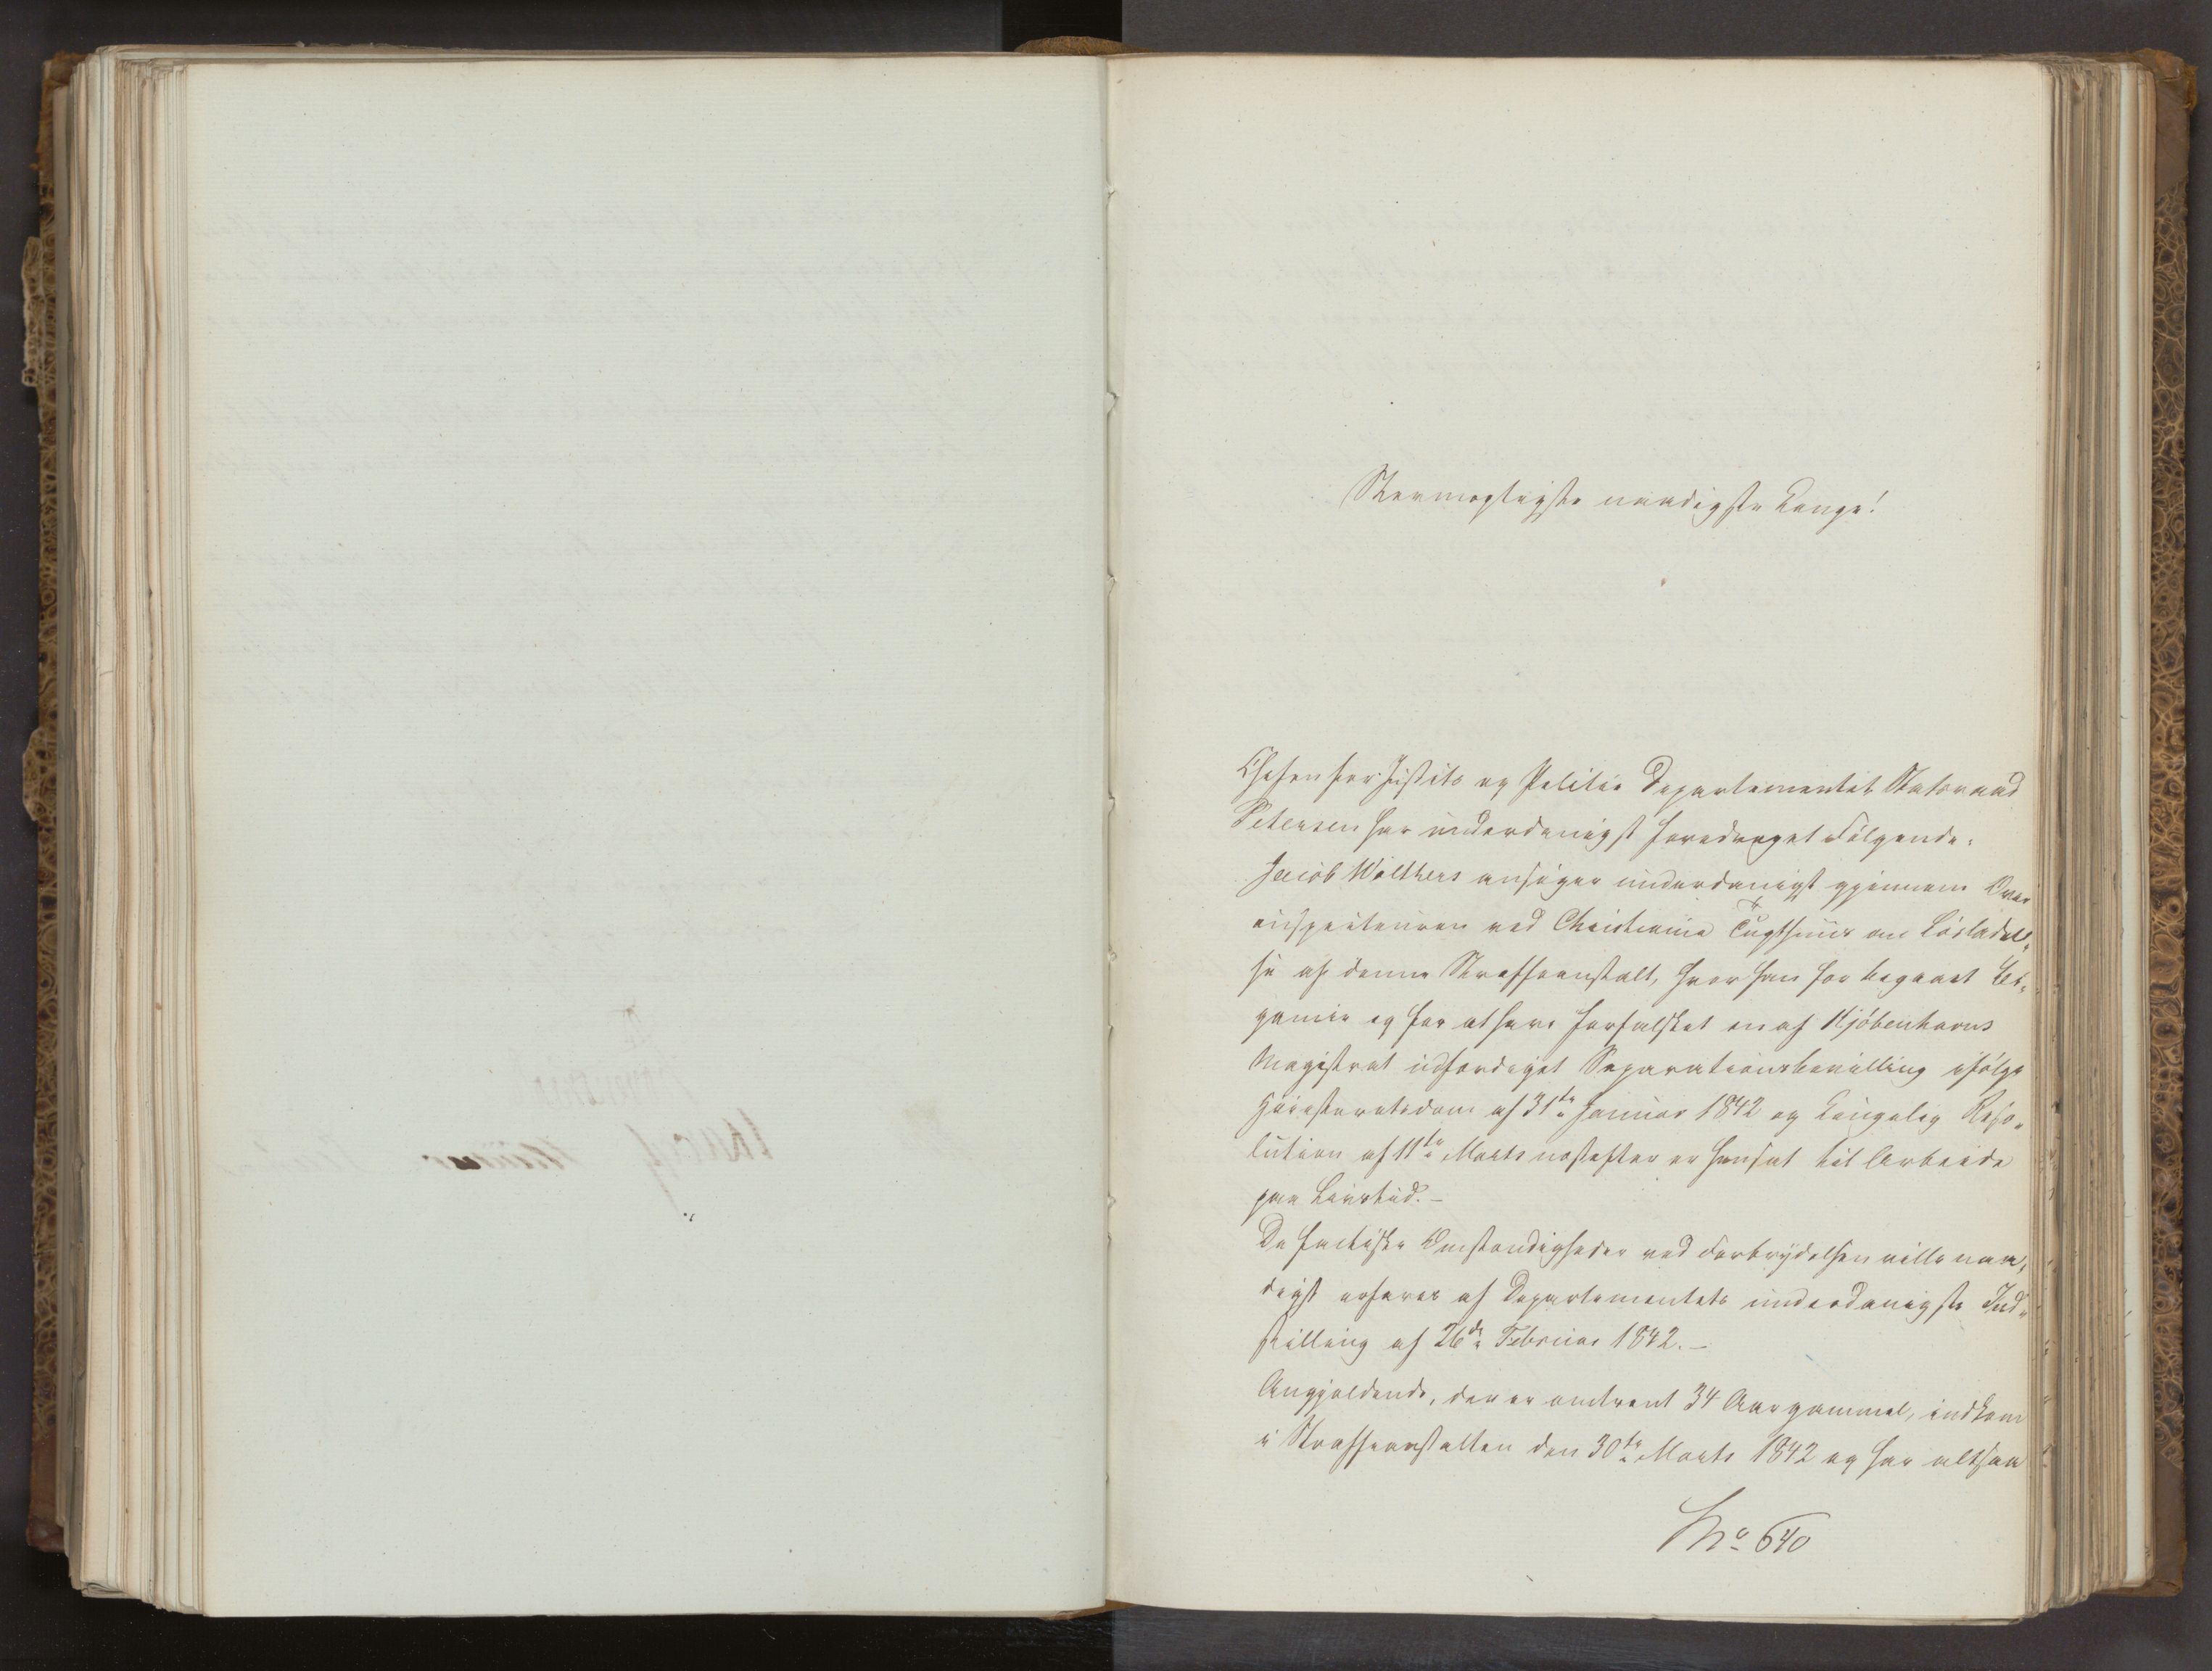 Stormægtigste naadigste Konge!
Chefen for Justits og Politie Departementet Statsraad
Petersen har underdanigst foredraget Følgende:
Jacob Wolthers ansøger underdanigst gjennem Over
inspecteuren ved Christiania Tugthuus om Løsladel„
se af denne Straffeanstalt, hvor han for begaaet Bi„
gamie og for at have forfalsket en af Kjøbenhavns
Magistrat udfærdiget Separationsbevilling ifølge
Høiesteretsdom af 31te Januar 1842 og Kongelig Reso„
lution af 11te Marts næstefter er hensat til Arbeide
paa Livstid. –
De factiske Omstændigheder ved Forbrydelsen ville naa„
digst erfares af Departementets underdanigste Ind„
stilling af 26de Februar 1842. –
Angjeldende, der er omtrent 34 Aar gammel, indkom
i Straffeanstalten den 30te Marts 1842 og har altsaa
No 640